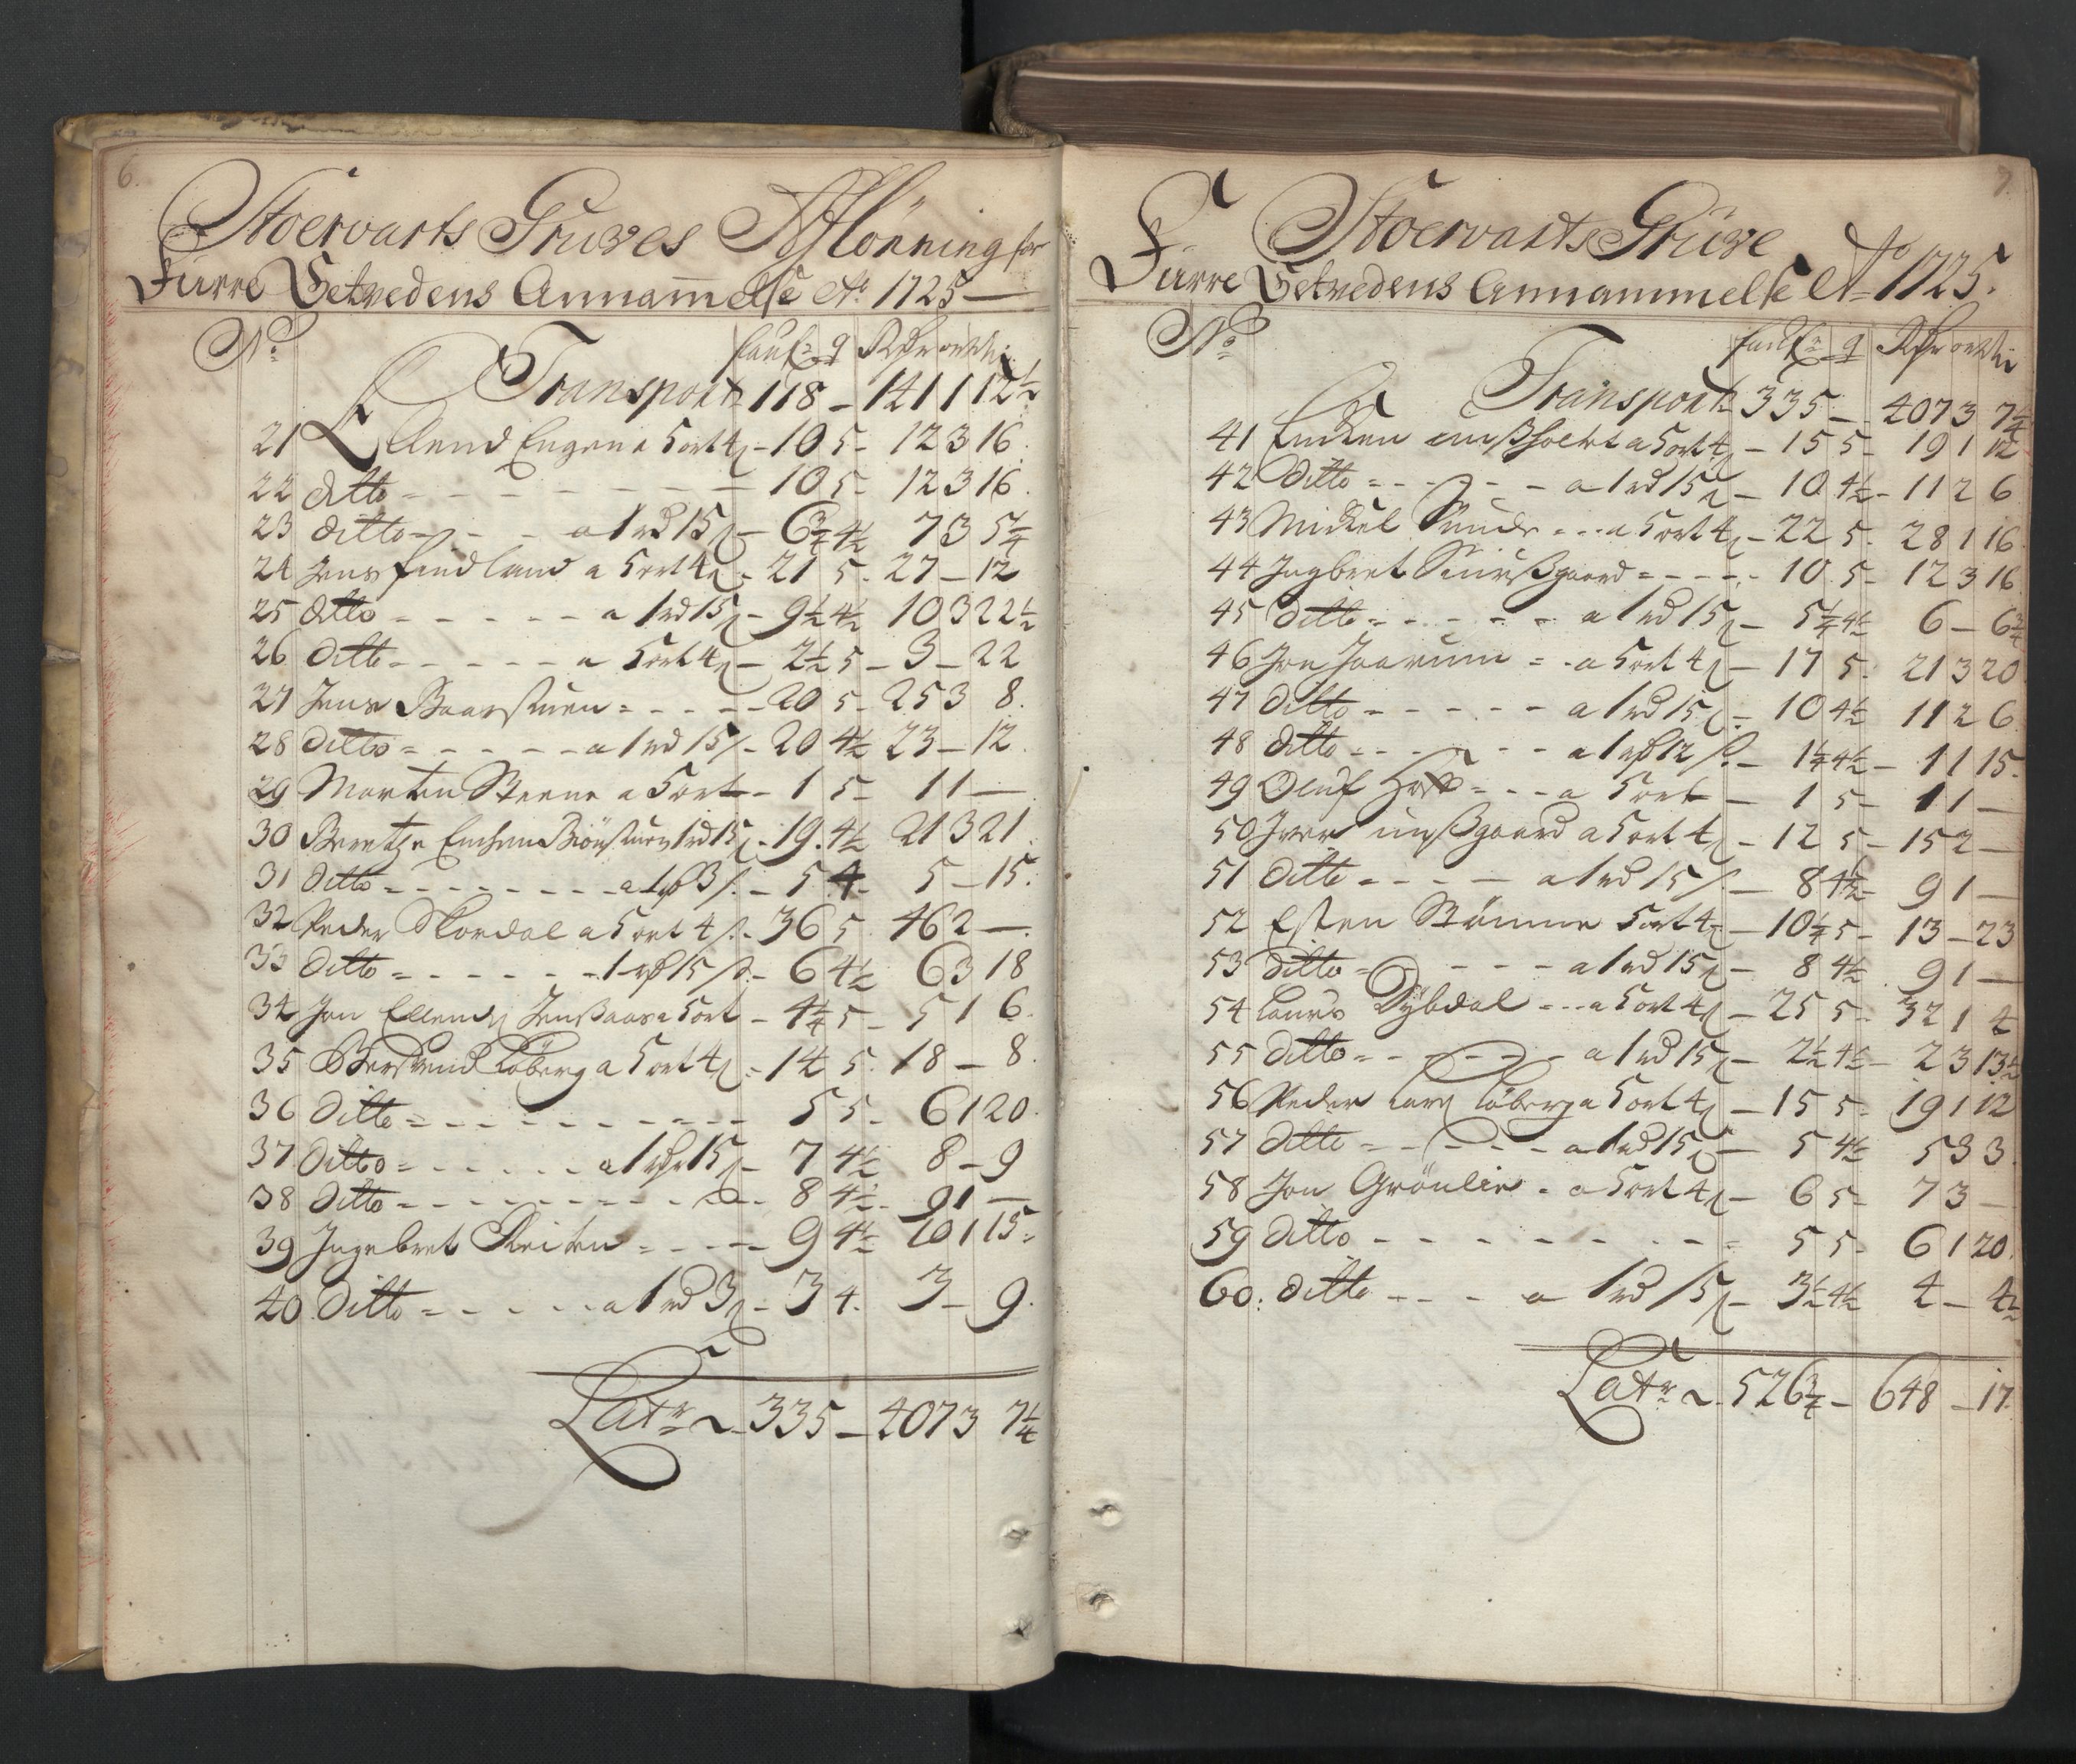 6.
Stoervarts Gruves Aflönning for
Furre Setvedens Annammelse Ao 1725
No
Transport 118 - 141 1 12½
21 Ellend Eugen a 5 ort 4 ß - 10 5 - 12 3 16
22 ditto - - - 10 5 - 12 3 16
23 ditto - - - a 1 rd 15 ß - 6¾ 4½ 7 3 5¼
24 Jens findland a 5 ort 4 ß - 21 5 - 27 - 12
25 ditto - - - a 1 rd 15 ß - 9½ 4½ 10 3 22½
26 ditto - - - a 5 ort 4 ß - 2½ 5 - 3 - 22
27 Jens Baarstuen - - - 20 5 - 25 3 8
28 ditto - - - a 1 rd 15 ß - 20 4½ 23 - 12
29 Morten Steene a 5 ort - 1 5 - 1 1 -
30 1 rd 15 ß - 19 4½ 21 3 21
31 ditto - - - a 1 rd 3 ß - 5 4 - 5 - 15
32 Peder Skordal a 5 ort 4 ß - 36 5 46 2 -
33 ditto - - - 1 rd 15 ß - 6 4½ 6 3 18
34 Jon Ellends Jensaas a 5 ort - 4¼ 5 - 5 1 6
35 Löberg a 5 ort 4 ß - 14 5 - 18 - 8
36 ditto - - - 5 5 - 6 1 20
37 ditto - - - a 1 rd 15 ß - 7 4½ 8 - 9
38 ditto - - - 8 4½ - 9 1 -
39 Ingebret Reiten - - - 9 4½ 10 1 15
40 ditto - - - a 1 rd 3 ß - 3 4 - 3 - 9
Latr 335 - 407 3 7¼
7.
F. Stoervarts Gruve
Furre Setvedens Annammelse Ao 1725.
No
Transport 335 - 407 3 7¼
41 a 5 ort 4 ß - 15 5 - 19 1 12
42 ditto - - - a 1 rd 15 ß - 10 4½ - 11 2 6
43 Mickel Sunds - - - a 5 ort 4 ß - 22 5 - 28 1 16
44 Ingbret - - - 10 5 - 12 3 16
45 ditto - - - a 1 rd 15 ß - 5¼ 4½ 6 - 6¾
46 Jon Jaarum - - a 5 ort 4 ß - 17 5 - 21 3 20
47 ditto - - - a 1 rd 15 ß - 10 4½ 11 2 6
48 ditto - - - a 1 rd 12 ß - 1¼ 4½ - 1 1 15
49 Oluf - - - a 5 ort - 1 5 - 1 1 -
50 Iver a 5 ort 4 ß - 12 5 - 15 2 -
51 ditto - - - a 1 rd 15 ß - 8 4½ - 9 1 -
52 Esten Stömne 5 ort 4 ß - 10¼ 5 - 13 - 23
53 ditto - - - a 1 rd 15 ß - 8 4½ 9 1 -
54 Laurs Dybdal - - - a 5 ort 4 ß - 25 5 - 32 1 4
55 ditto - - - a 1 rd 15 ß - 2½ 4½ - 2 3 13½
56 Peder Lars Löberg a 5 ort 4 ß - 15 5 - 19 1 12
57 ditto - - - a 1 rd 15 ß - 5 4½ 5 3 3
58 Jon Grönlie - a 5 ort 4 ß - 6 5 - 7 3 -
59 ditto - - - 5 5 - 6 1 20
60. ditto - - - a 1 rd 15 ß - 3½ 4½ 4 - 4½
Latr 526¾ - 648 - 17